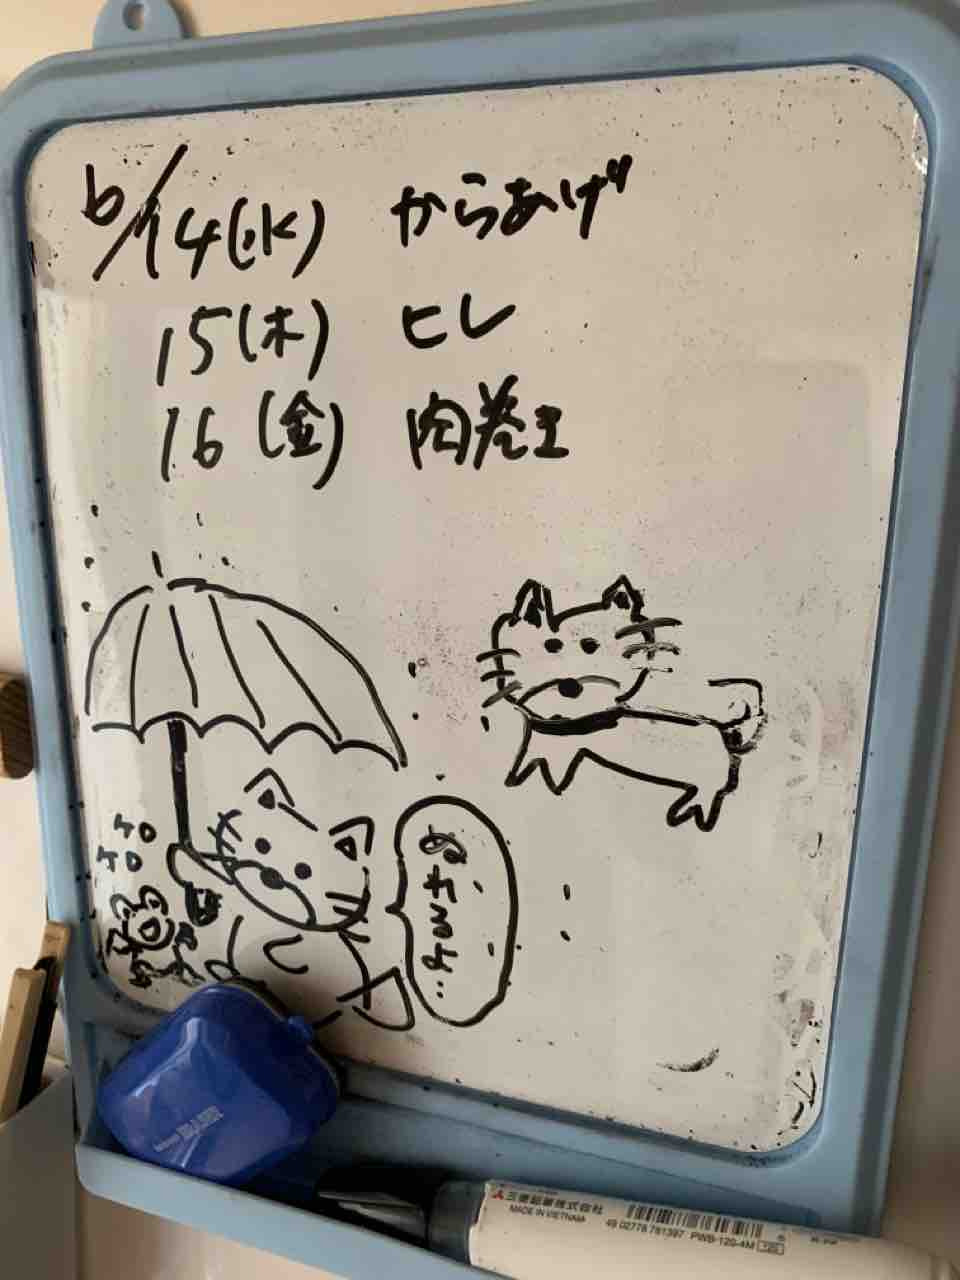 6/14(水) からあげ
15(木) ヒレ
16(金) 肉巻王
ケロ
ケロ
三菱鉛筆株式会社
MADE IN VIETNAM
49 02778 781397 PWB-120-4M